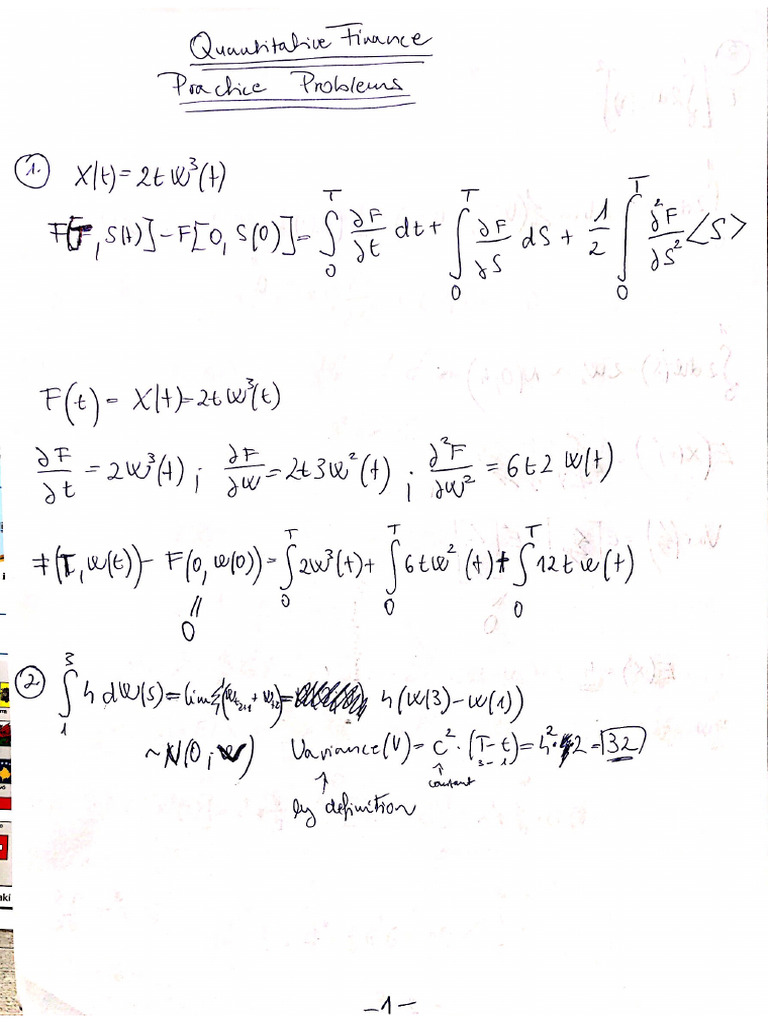 Quantitative Finance
Practice Problems
1. X(t) = 2t W³(t)
F[T, S(t)] - F[0, S(0)] = ∫₀ᵀ ∂F/∂t dt + ∫₀ᵀ ∂F/∂S dS + 1/2 ∫₀ᵀ ∂²F/∂S² <S>
F(t) = X(t) = 2t W³(t)
∂F/∂t = 2W³(t) ; ∂F/∂W = 2t3W²(t) ; ∂²F/∂W² = 6t2 W(t)
F(T, W(t)) - F(0, W(0)) = ∫₀ᵀ 2W³(t) + ∫₀ᵀ 6tW²(t) + ∫₀ᵀ 12t W(t)
||
0
2. ∫₁³ 4 dW(s) = lim = 4(W(3) - W(1))
~N(0, V) Variance(V) = c² · (T - t) = 4² · 2 = 32
↑ constant 3 - 1
↑
by definition
-1-